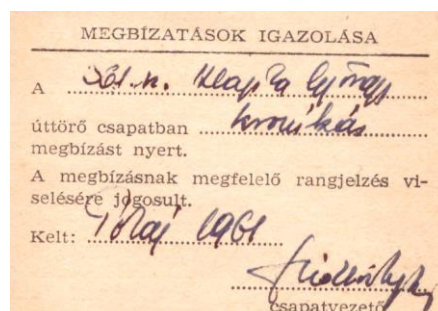 MEGBÍZATÁSOK IGAZOLÁSA
A 561. n. Klapka György
úttörő csapatban krónikás
megbízást nyert.
A megbízásnak megfelelő rangjelzés vi-
selésére jogosult.
Kelt: 1961
csapatvezető